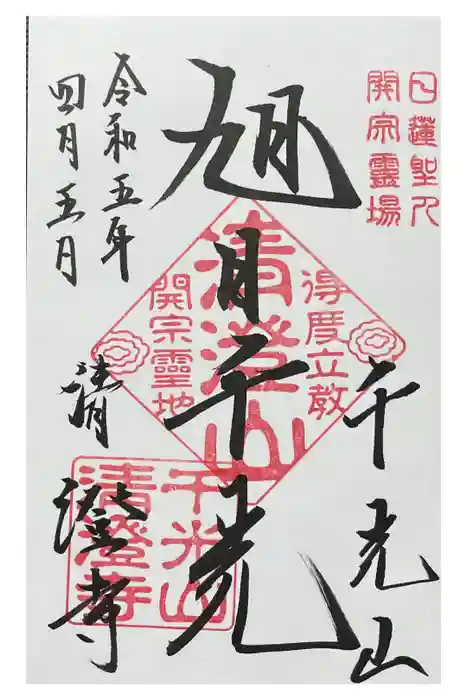 日蓮聖人
開宗靈場
千光山
旭日千光
得度立教
清澄山
開宗靈地
千光山
清澄寺
令和五年
四月五日
清澄寺